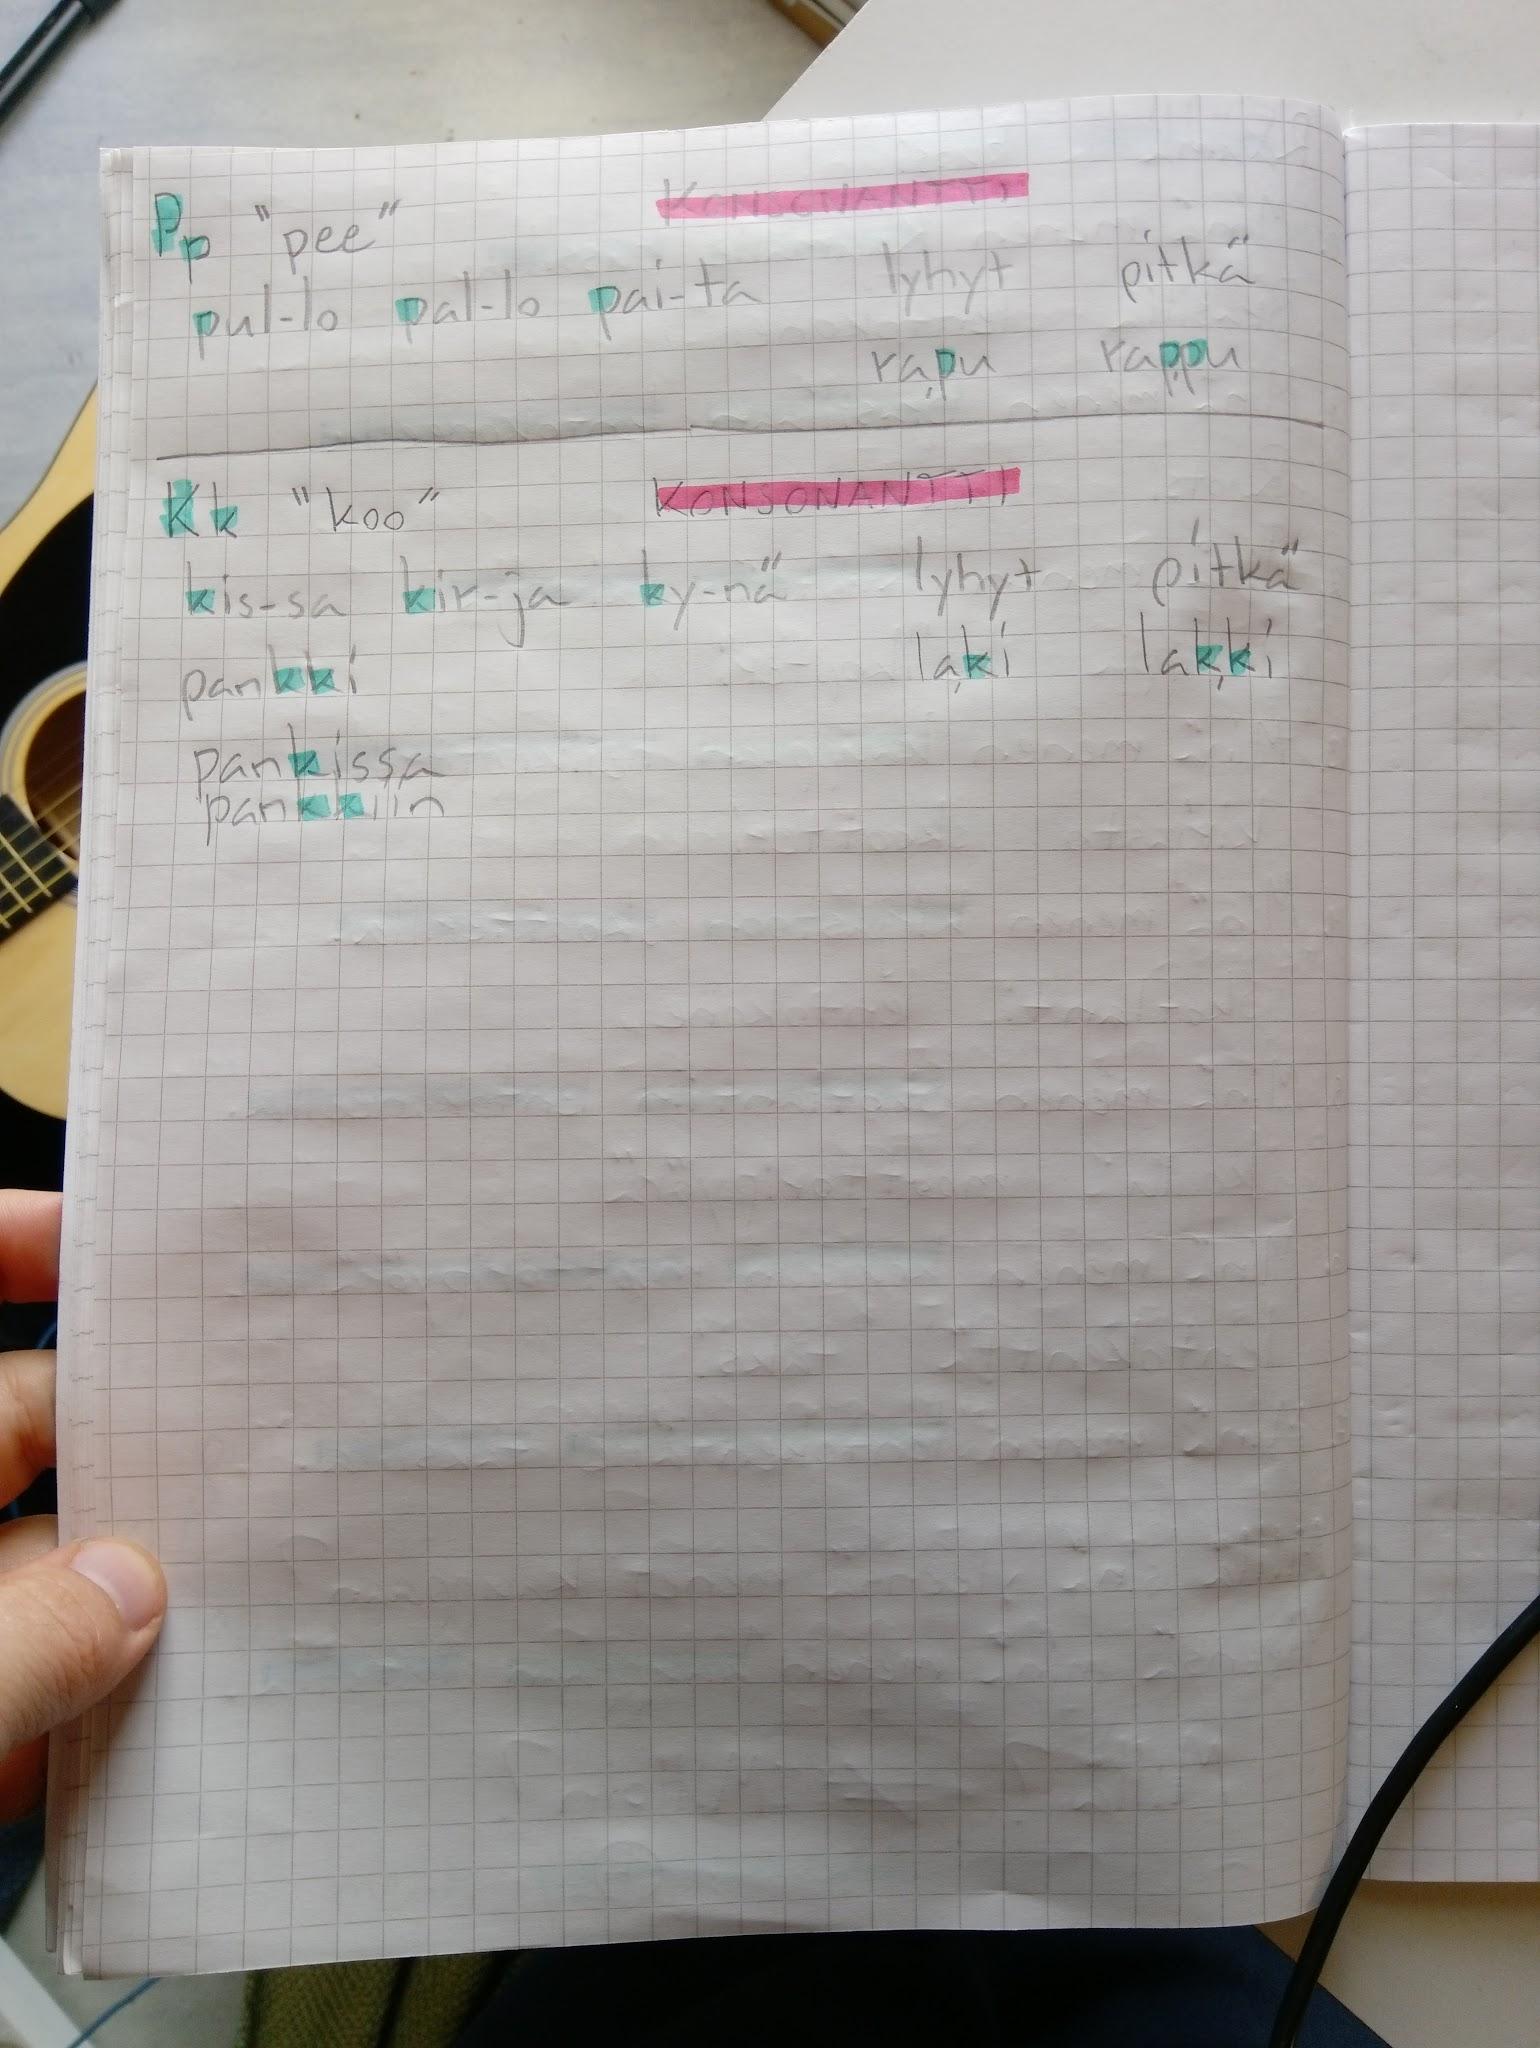 Pp "pee" KONSONANTTI
pul-lo pal-lo pai-ta lyhyt pitkä
rapu rappu
Kk "koo" KONSONANTTI
kis-sa kir-ja ky-nä lyhyt pitkä
pankki laki lakki
pankissa
pankkiin